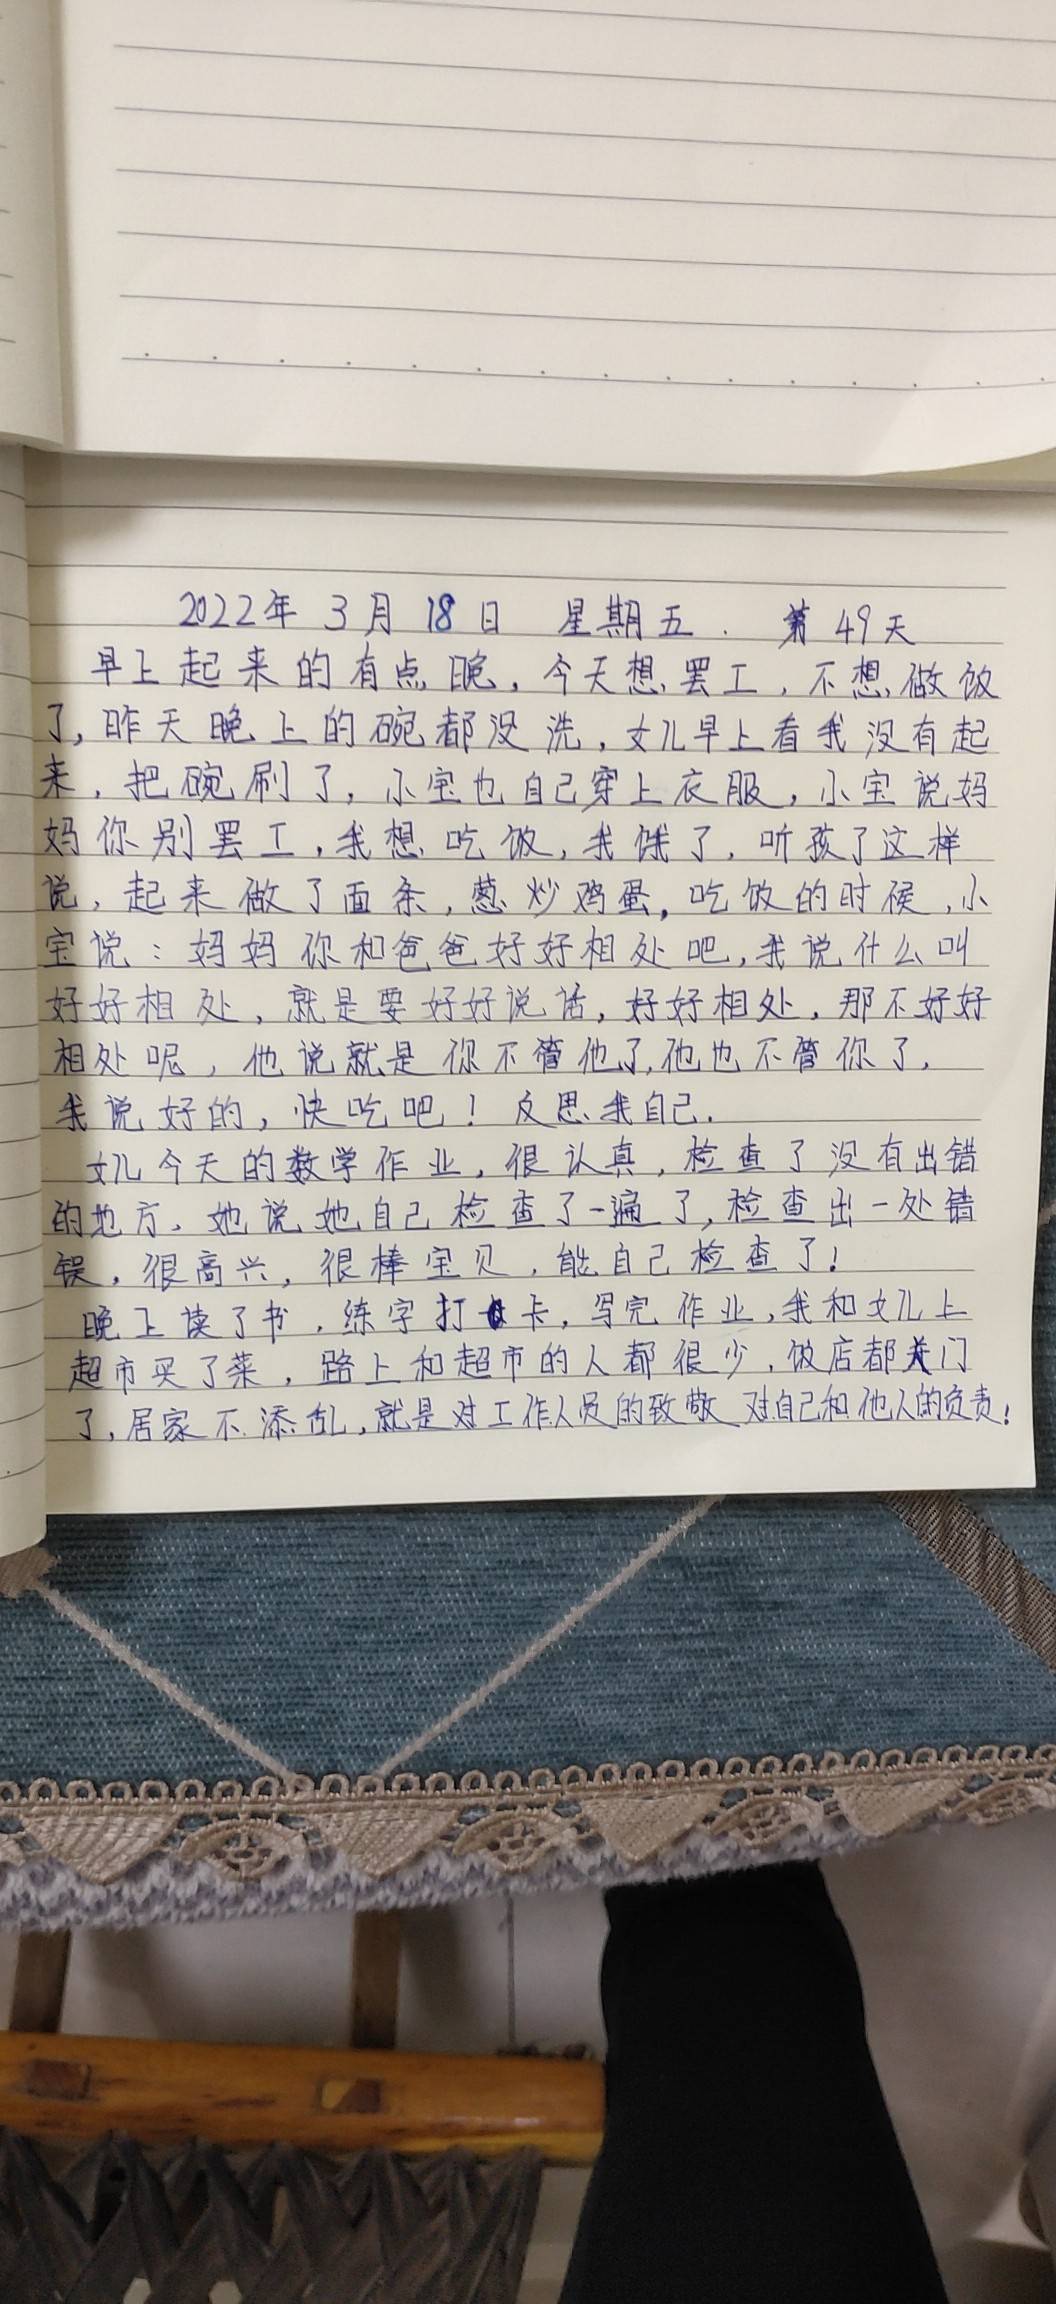 2022年 3月 18日 星期五. 第49天
早上起来的有点晚,今天想罢工,不想做饭
了,昨天晚上的碗都没洗,女儿早上看我没有起
来,把碗刷了,小宝也自己穿上衣服,小宝说妈
妈你别罢工,我想吃饭,我饿了,听孩子这样
说,起来做了面条,葱炒鸡蛋,吃饭的时候,小
宝说:妈妈你和爸爸好好相处吧,我说什么叫
好好相处,就是要好好说话,好好相处,那不好好
相处呢,他说就是你不管他了,他也不管你了,
我说好的,快吃吧!反思我自己.
女儿今天的数学作业,很认真,检查了没有出错
的地方、她说她自己检查了一遍了,检查出一处错
误,很高兴,很棒宝贝,能自己检查了!
晚上读了书,练字打卡,写完作业,我和女儿上
超市买了菜,路上和超市的人都很少,饭店都关门
了,居家不添乱,就是对工作人员的致敬 对自己和他人的负责!